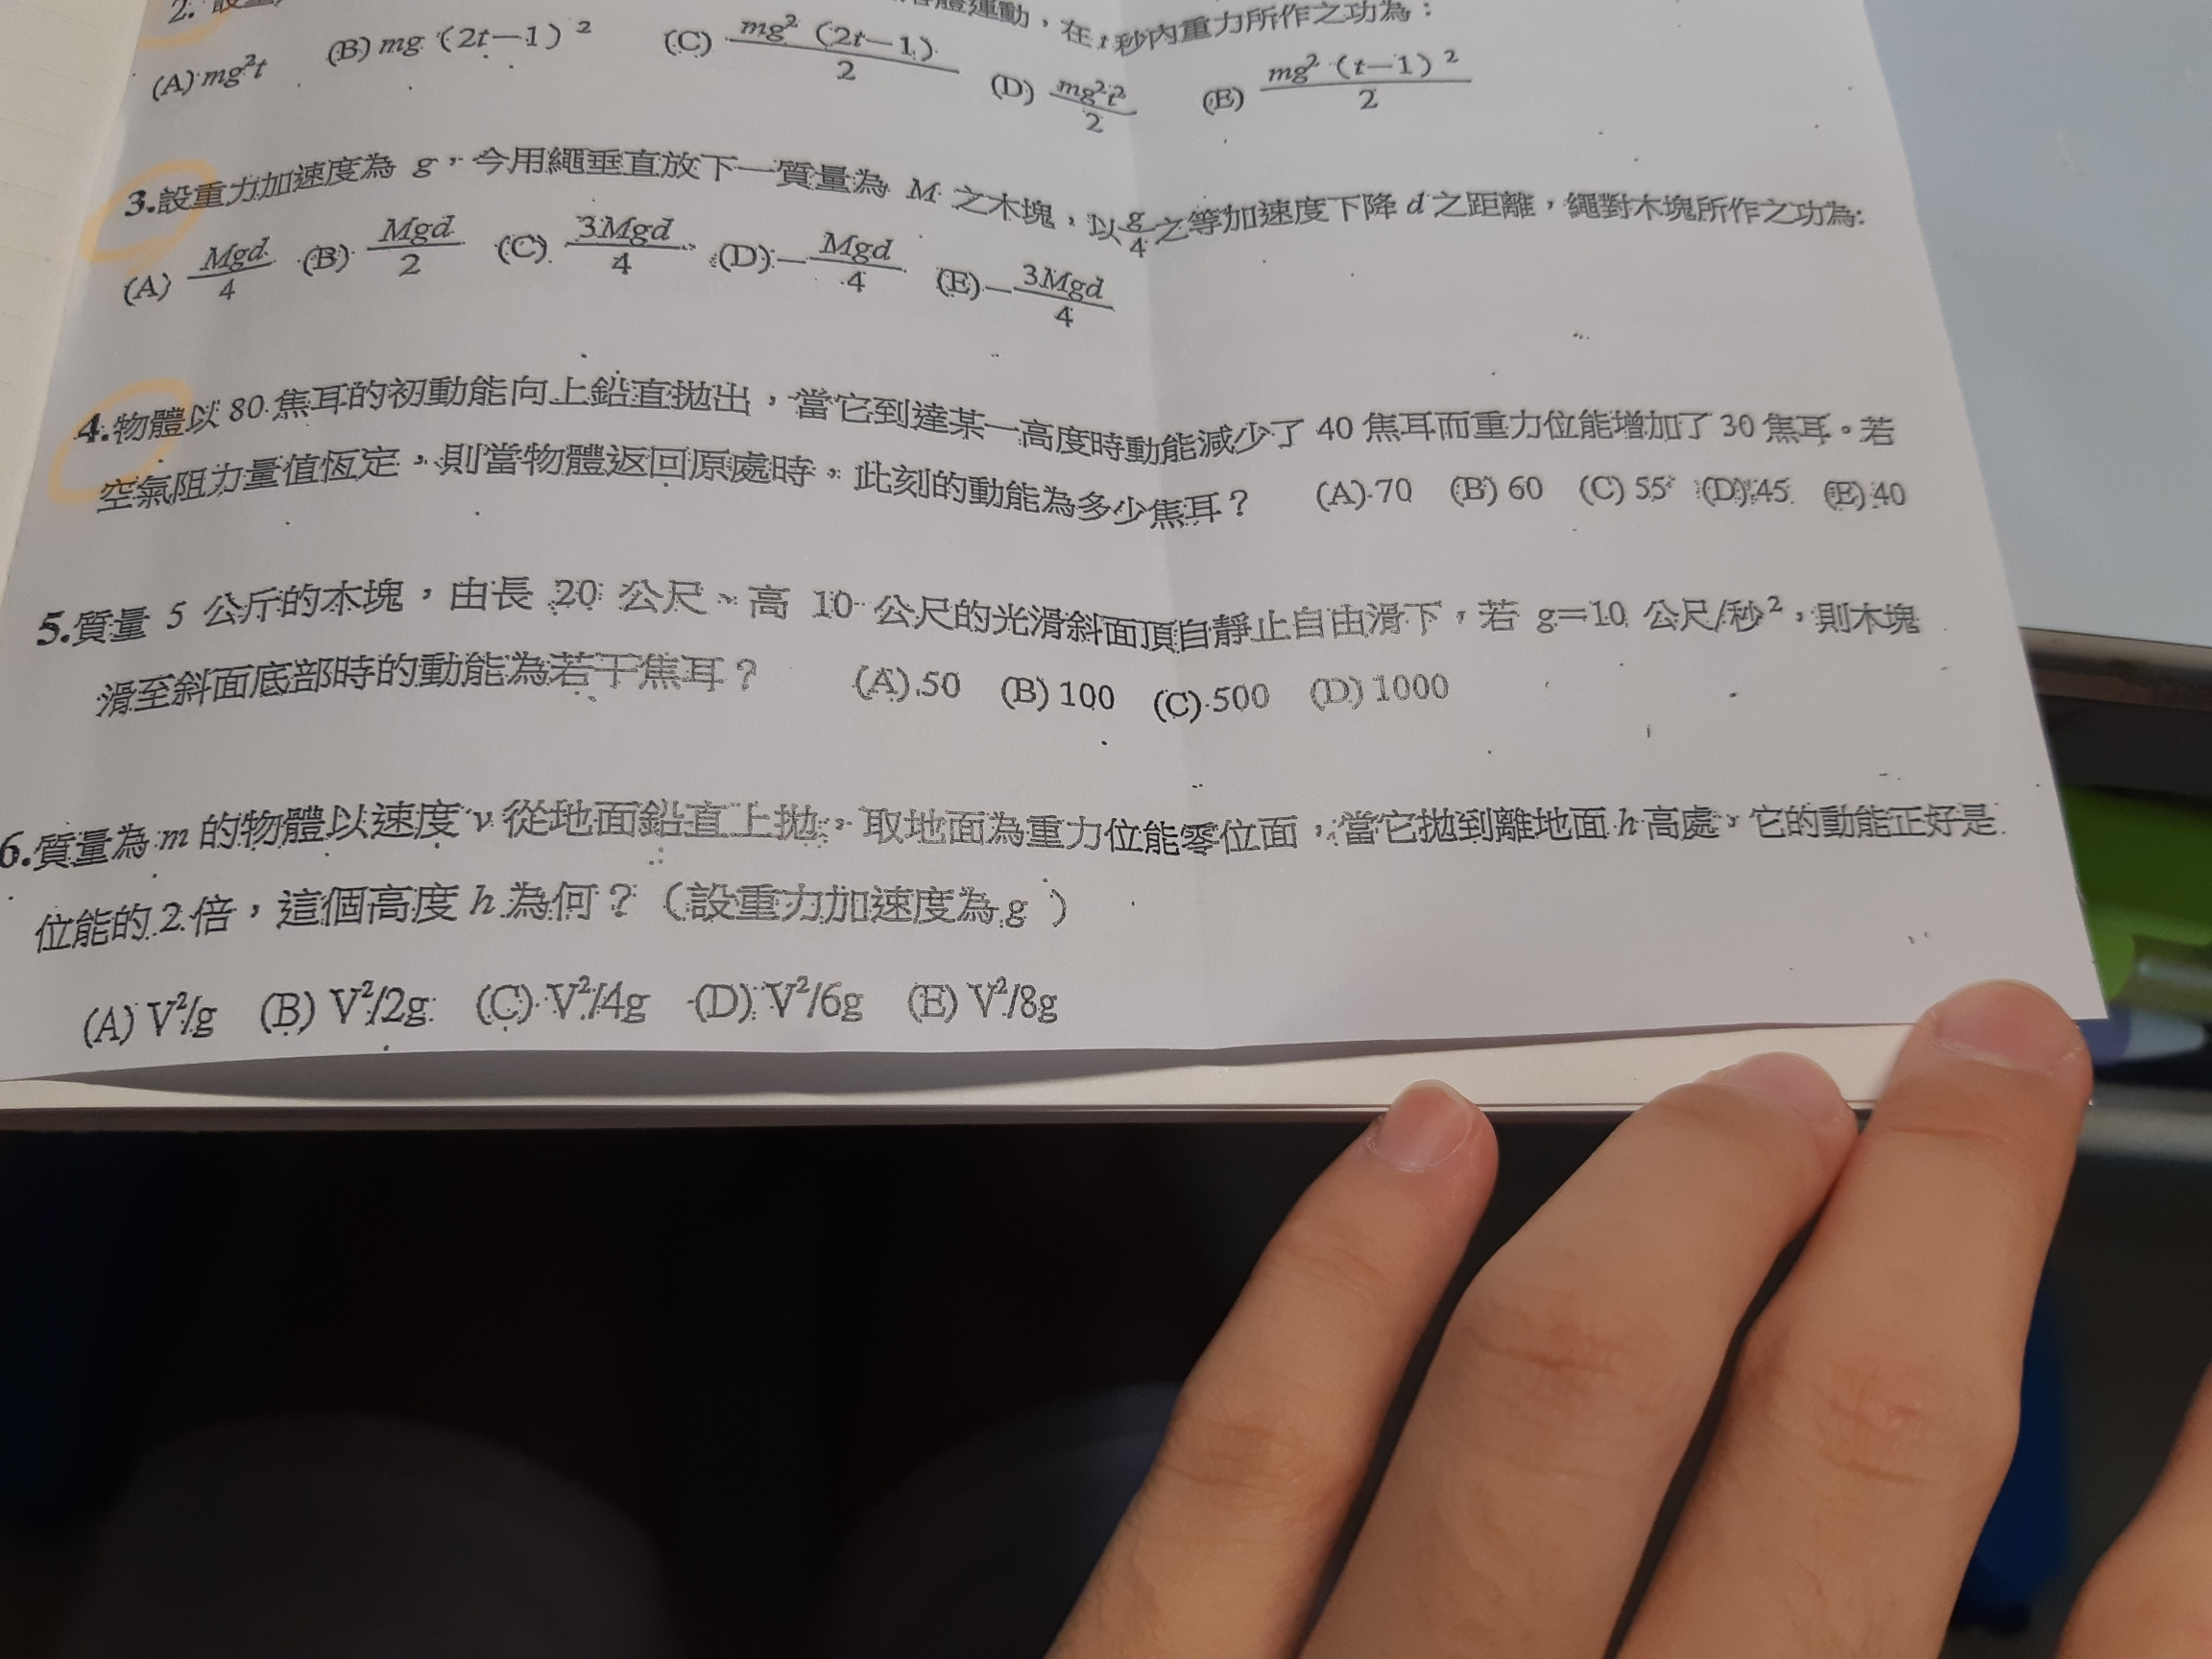 2. 設
體運動，在 t 秒內重力所作之功為：
(A) mg²t (B) mg（2t－1）² (C) mg²（2t－1）/2 (D) mg²t²/2 (E) mg²（t－1）²/2
3.設重力加速度為 g，今用繩垂直放下一質量為 M 之木塊，以 g/4 之等加速度下降 d 之距離，繩對木塊所作之功為:
(A) Mgd/4 (B) Mgd/2 (C) 3Mgd/4 (D)－Mgd/4 (E)－3Mgd/4
4.物體以 80 焦耳的初動能向上鉛直拋出，當它到達某一高度時動能減少了 40 焦耳而重力位能增加了 30 焦耳。若
空氣阻力量值恆定，則當物體返回原處時，此刻的動能為多少焦耳？ (A) 70 (B) 60 (C) 55 (D) 45 (E) 40
5.質量 5 公斤的木塊，由長 20 公尺、高 10 公尺的光滑斜面頂自靜止自由滑下，若 g＝10 公尺/秒²，則木塊
滑至斜面底部時的動能為若干焦耳？ (A) 50 (B) 100 (C) 500 (D) 1000
6.質量為 m 的物體以速度 v 從地面鉛直上拋，取地面為重力位能零位面，當它拋到離地面 h 高處，它的動能正好是
位能的 2 倍，這個高度 h 為何？（設重力加速度為 g ）
(A) V²/g (B) V²/2g (C) V²/4g (D) V²/6g (E) V²/8g